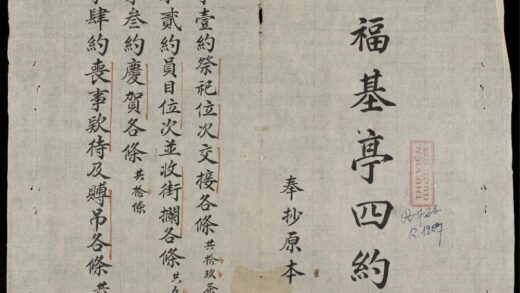 福基亭四約
奉抄原本
壹約祭祀位次交接各條共拾玖条
貳約員目位次並收街攔各條共
叁約慶賀各條共拾條
肆約喪事欵待及賻吊各條共